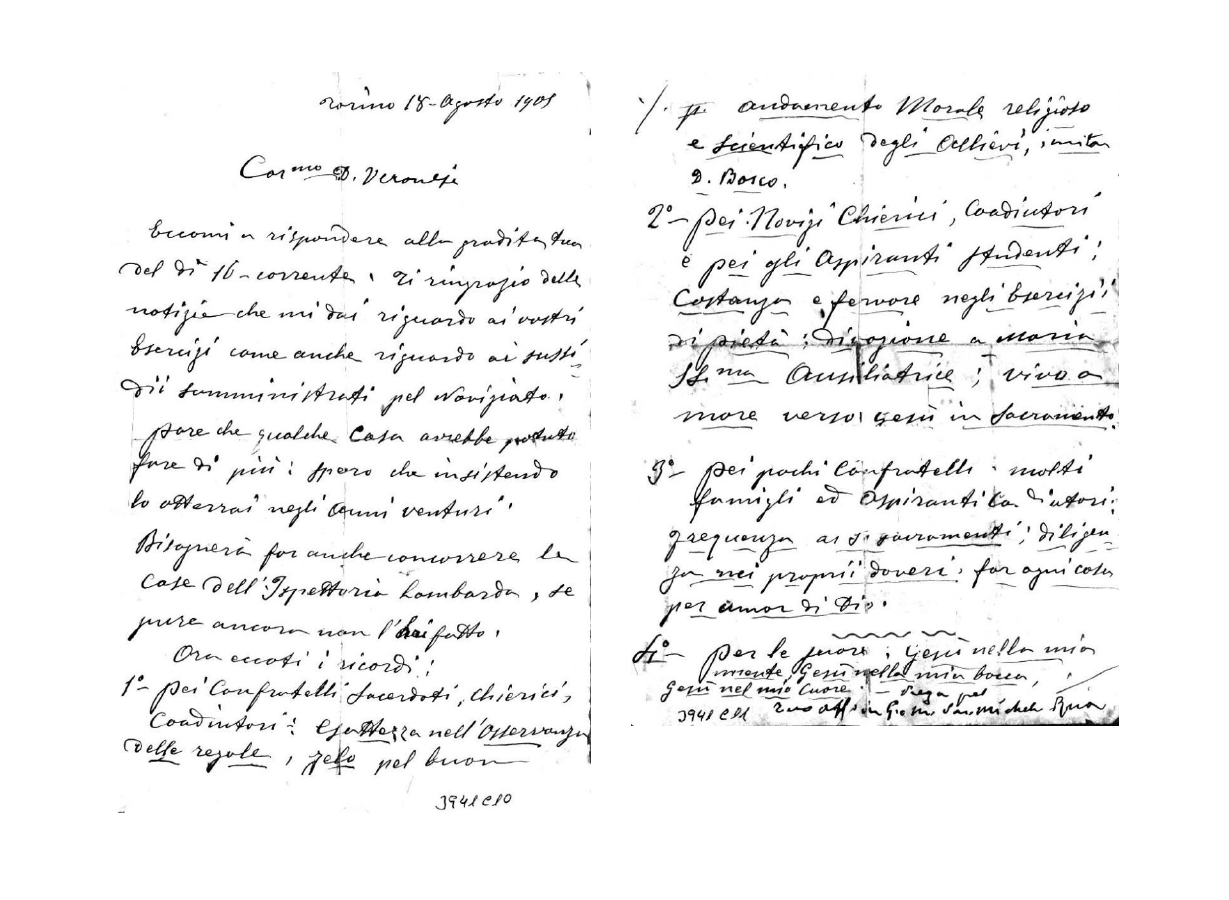 Torino 18-Agosto 1905
Car.mo D. Veronese
Eccomi a rispondere alla gradita tua
del dì 16-corrente. Ti ringrazio delle
notizie che mi dai riguardo ai vostri
Esercizi come anche riguardo ai sussi-
dii somministrati pel Noviziato.
pare che qualche Casa avrebbe potuto
fare di più: spero che insistendo
lo otterrai negli anni venturi.
Bisognerà far anche concorrere le
Case dell'Ispettoria Lombarda, se
pure ancora non l'hai fatto.
Ora eccoti i ricordi:
1°- pei Confratelli Sacerdoti, Chierici,
Coadiutori: Esattezza nell'Osservanza
delle regole, zelo pel buon
3941 C10
./. andamento Morale religioso
e Scientifico degli Allievi, imitar
D. Bosco.
2°- pei Novizi Chierici, Coadiutori
e pei gli Aspiranti studenti:
Costanza e fervore negli Esercizii
di pietà: divozione a Maria
SS.ma Ausiliatrice; vivo a
more verso Gesù in Sacramento.
3°- pei pochi Confratelli molti
famigli ed Aspiranti Coadiutori:
frequenza ai S. Sacramenti; diligen-
za nei proprii doveri. far ogni cosa
per amor di Dio.
4°- per le suore: Gesù nella mia
mente, Gesù nella mia bocca,
Gesù nel mio Cuore. - Prega pel
3941 C11 tuo aff. in G. Sac. Michele Rua